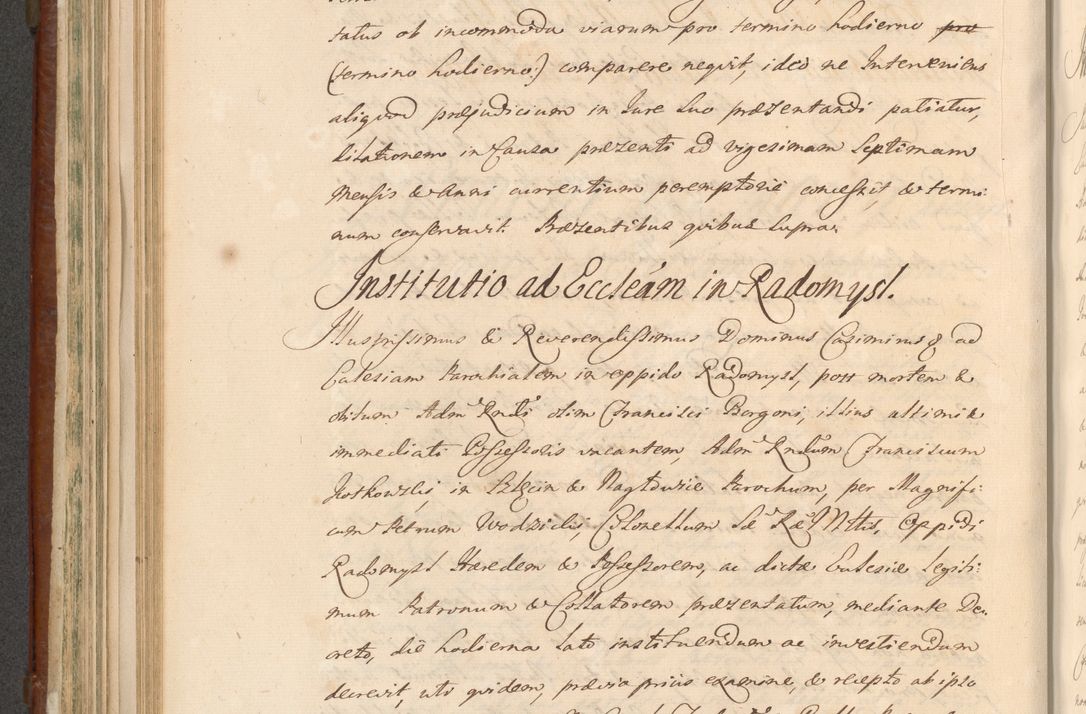 tatus ob incommoda viarum pro termino hodierno pro
(termino hodierno) comparere nequit, ideo ne Interveniens
aliquod præjudicium in Jure suo præsentandi patiatur,
dilationem in Causa præsenti ad vigesimam septimam
Mensis & Anni currentium peremptorie concessit, & termi:
num conservavit. Præsentibus quibus supra.
Institutio ad Eccleam in Radomysl.
Illustrissimus & Reverendissimus Dominus Casimirus &c ad
Eclesiam Parochialem in oppido Radomysl, post mortem &
obitum Adm Rndi olim Francisci Borgoni, illius ultimi &
immediati Possessoris vacantem, Adm Rndum Franciscum
Kotkowski, in & Nagłowice Parochum, per Magnifi:
cum Petrum Wodzicki, Colonellum Sæ Ræ Mttis, Oppidi
Radomysl Hæredem & Possessorem, ac dictæ Eclesiæ legiti:
mum Patronum & Collatorem præsentatum, mediante De:
creto, die hodierna lato instituendum ac investiendum
decrevit, uti quidem, prævia prius examine, & recepto ab ipso